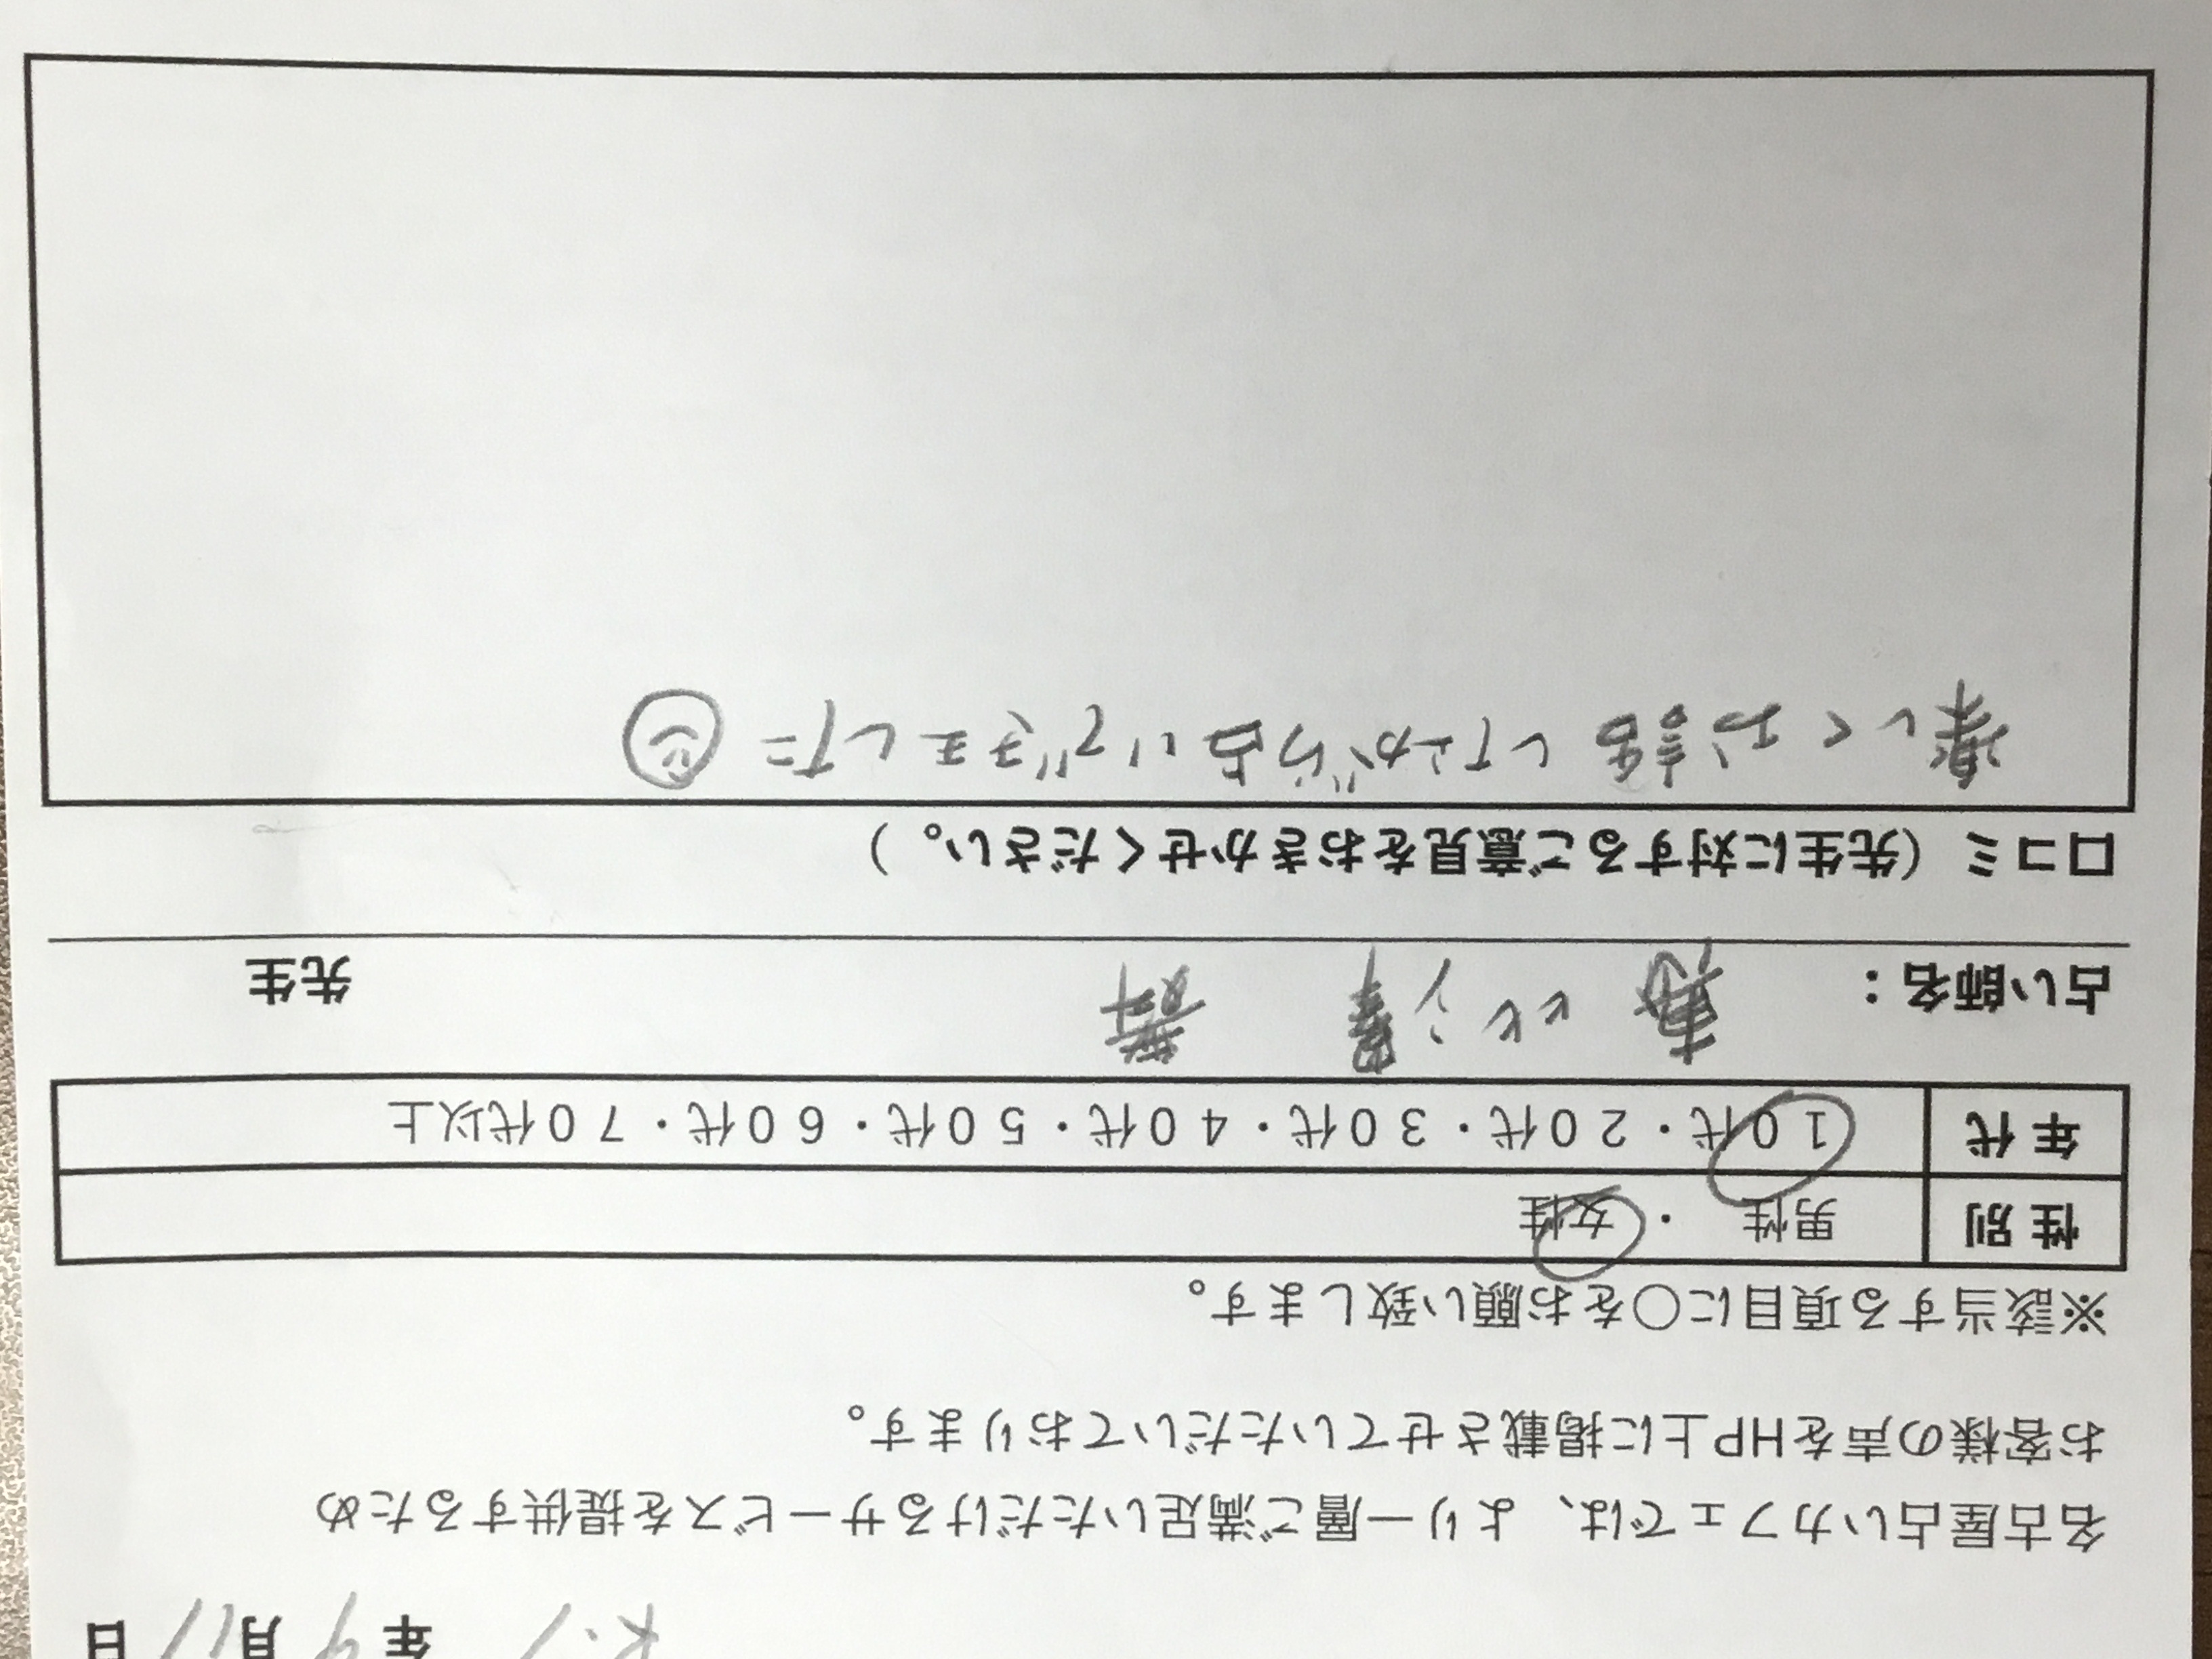 R.1年9月11日
名古屋占いカフェでは、より一層ご満足いただけるサービスを提供するため
お客様の声をHP上に掲載させていただいております。
※該当する項目に〇をお願い致します。
性別 男性 ・ 女性
年代 10代・20代・30代・40代・50代・60代・70代以上
占い師名： 先生
口コミ（先生に対するご意見をおきかせください。）
楽しくお話しながら占いできました